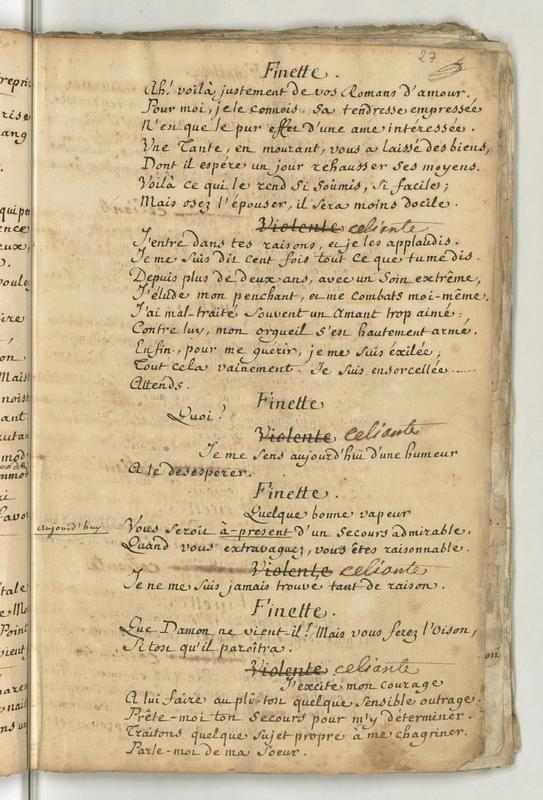 27
Finette.
Ah! voilà justement de vos Romans d'amour.
Pour moi, je le connois. Sa tendresse empressée
N'en que le pur effet d'une ame intéressée.
Une Tante, en mourant, vous a laissé des biens,
Dont il espére un jour rehausser ses moyens.
Voilà ce qui le rend si soumis, si facile;
Mais osez l'épouser, il sera moins docile.
Violente celiante
J'entre dans tes raisons, et je les applaudis.
Je me suis dit cent fois tout ce que tu me dis.
Depuis plus de deux ans, avec un soin extrême,
J'élude mon penchant, et me combats moi-même.
J'ai mal-traité souvent un amant trop aimé:
Contre luy, mon orgueil s'est hautement armé.
Enfin, pour me guérir, je me suis éxilée;
Tout cela vainement. Je suis ensorcellée......
Attends.
Finette
Quoi?
Violente celiante
Je me sens aujourd'hui d'une humeur
A le desesperer.
Finette.
Quelque bonne vapeur
aujourd'huy
Vous seroit à-present d'un secours admirable.
Quand vous extravaguez, vous êtes raisonnable.
Violente celiante
Je ne me suis jamais trouvé tant de raison.
Finette.
Que Damon ne vient-il! Mais vous ferez l'oison,
Si tost qu'il paroîtra.
Violente celiante
J'excite mon courage
A lui faire au plû-tost quelque sensible outrage.
Prête-moi ton secours pour m'y déterminer.
Traitons quelque sujet propre à me chagriner.
Parle-moi de ma soeur.